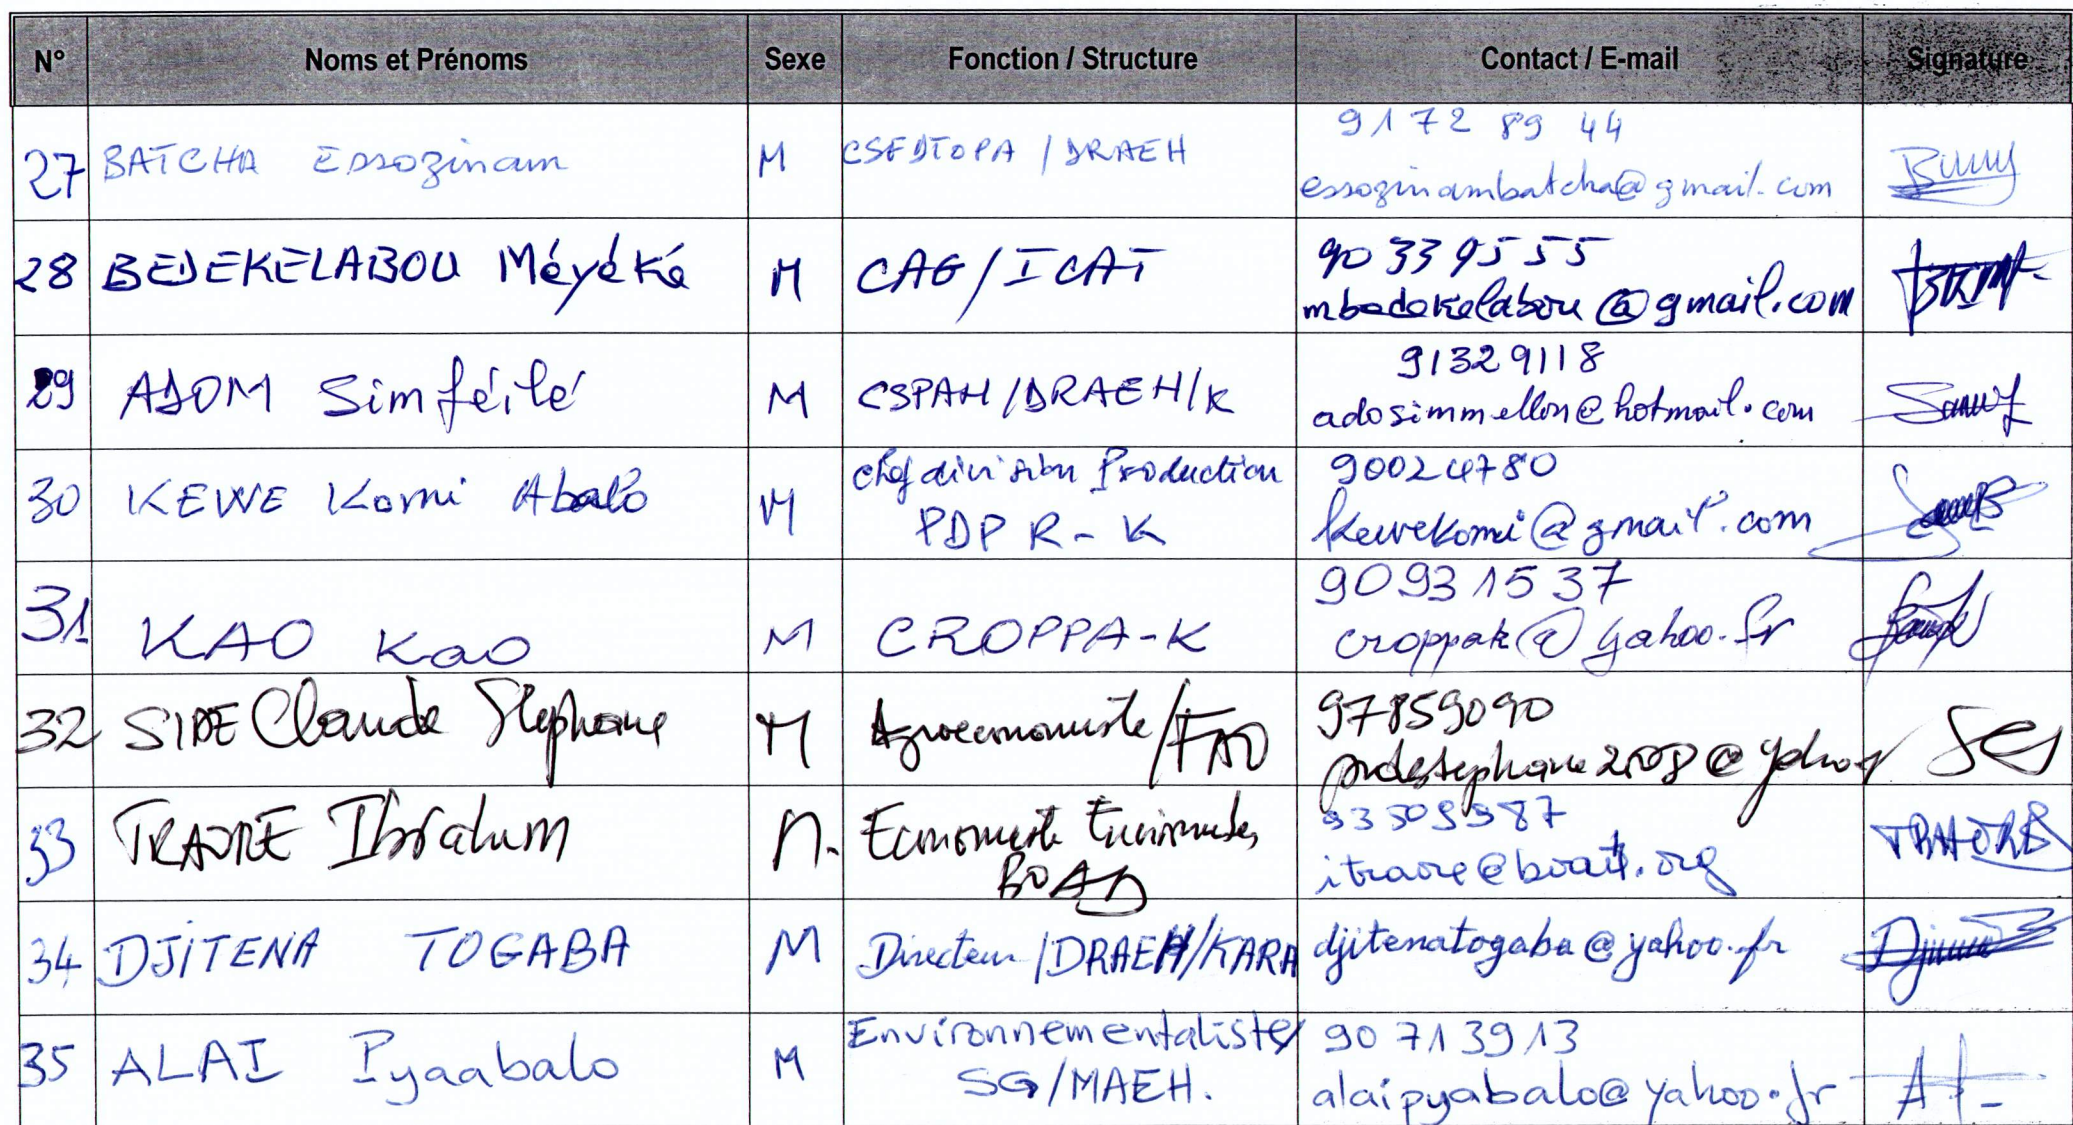 N° Noms et Prénoms Sexe Fonction / Structure Contact / E-mail Signature
27 BATCHA Essozinam M CSFDTOPA / DRAEH 91 72 89 44
essozinambatcha@gmail.com
28 BEDEKELABOU Méyéké M CAG/ICAT 90 33 95 55
mbedekelabou@gmail.com
29 ADOM Simféilé M CSPAH/DRAEH/K 91329118
adosimmellon@hotmail.com
30 KEWE Komi Abalo M Chef division Production 90024780
PDPR-K kewekomi@gmail.com
31 KAO Kao M CROPPA-K 90931537
croppak@yahoo.fr
32 Claude Stephane M Agroeconomiste/FAO 97859090
33 TRAORE Ibrahim M. Economiste
BOAD itraore@boad.org
TRAORE
34 DJITENA TOGABA M Directeur/DRAEH/KARA djitenatogaba@yahoo.fr
35 ALAI Pyaabalo M Environnementaliste/ 90 71 39 13
SG/MAEH. alaipyabalo@yahoo.fr